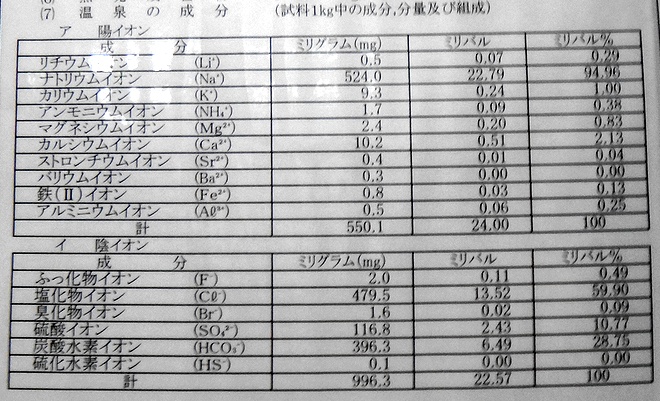 (7) 温泉の成分 (試料1kg中の成分,分量及び組成)
ア 陽イオン
成分 ミリグラム(mg) ミリバル ミリバル%
リチウムイオン (Li⁺) 0.5 0.07 0.29
ナトリウムイオン (Na⁺) 524.0 22.79 94.96
カリウムイオン (K⁺) 9.3 0.24 1.00
アンモニウムイオン (NH₄⁺) 1.7 0.09 0.38
マグネシウムイオン (Mg²⁺) 2.4 0.20 0.83
カルシウムイオン (Ca²⁺) 10.2 0.51 2.13
ストロンチウムイオン (Sr²⁺) 0.4 0.01 0.04
バリウムイオン (Ba²⁺) 0.3 0.00 0.00
鉄(Ⅱ)イオン (Fe²⁺) 0.8 0.03 0.13
アルミニウムイオン (Aℓ³⁺) 0.5 0.06 0.25
計 550.1 24.00 100
イ 陰イオン
成分 ミリグラム(mg) ミリバル ミリバル%
ふっ化物イオン (F⁻) 2.0 0.11 0.49
塩化物イオン (Cℓ⁻) 479.5 13.52 59.90
臭化物イオン (Br⁻) 1.6 0.02 0.09
硫酸イオン (SO₄²⁻) 116.8 2.43 10.77
炭酸水素イオン (HCO₃⁻) 396.3 6.49 28.75
硫化水素イオン (HS⁻) 0.1 0.00 0.00
計 996.3 22.57 100